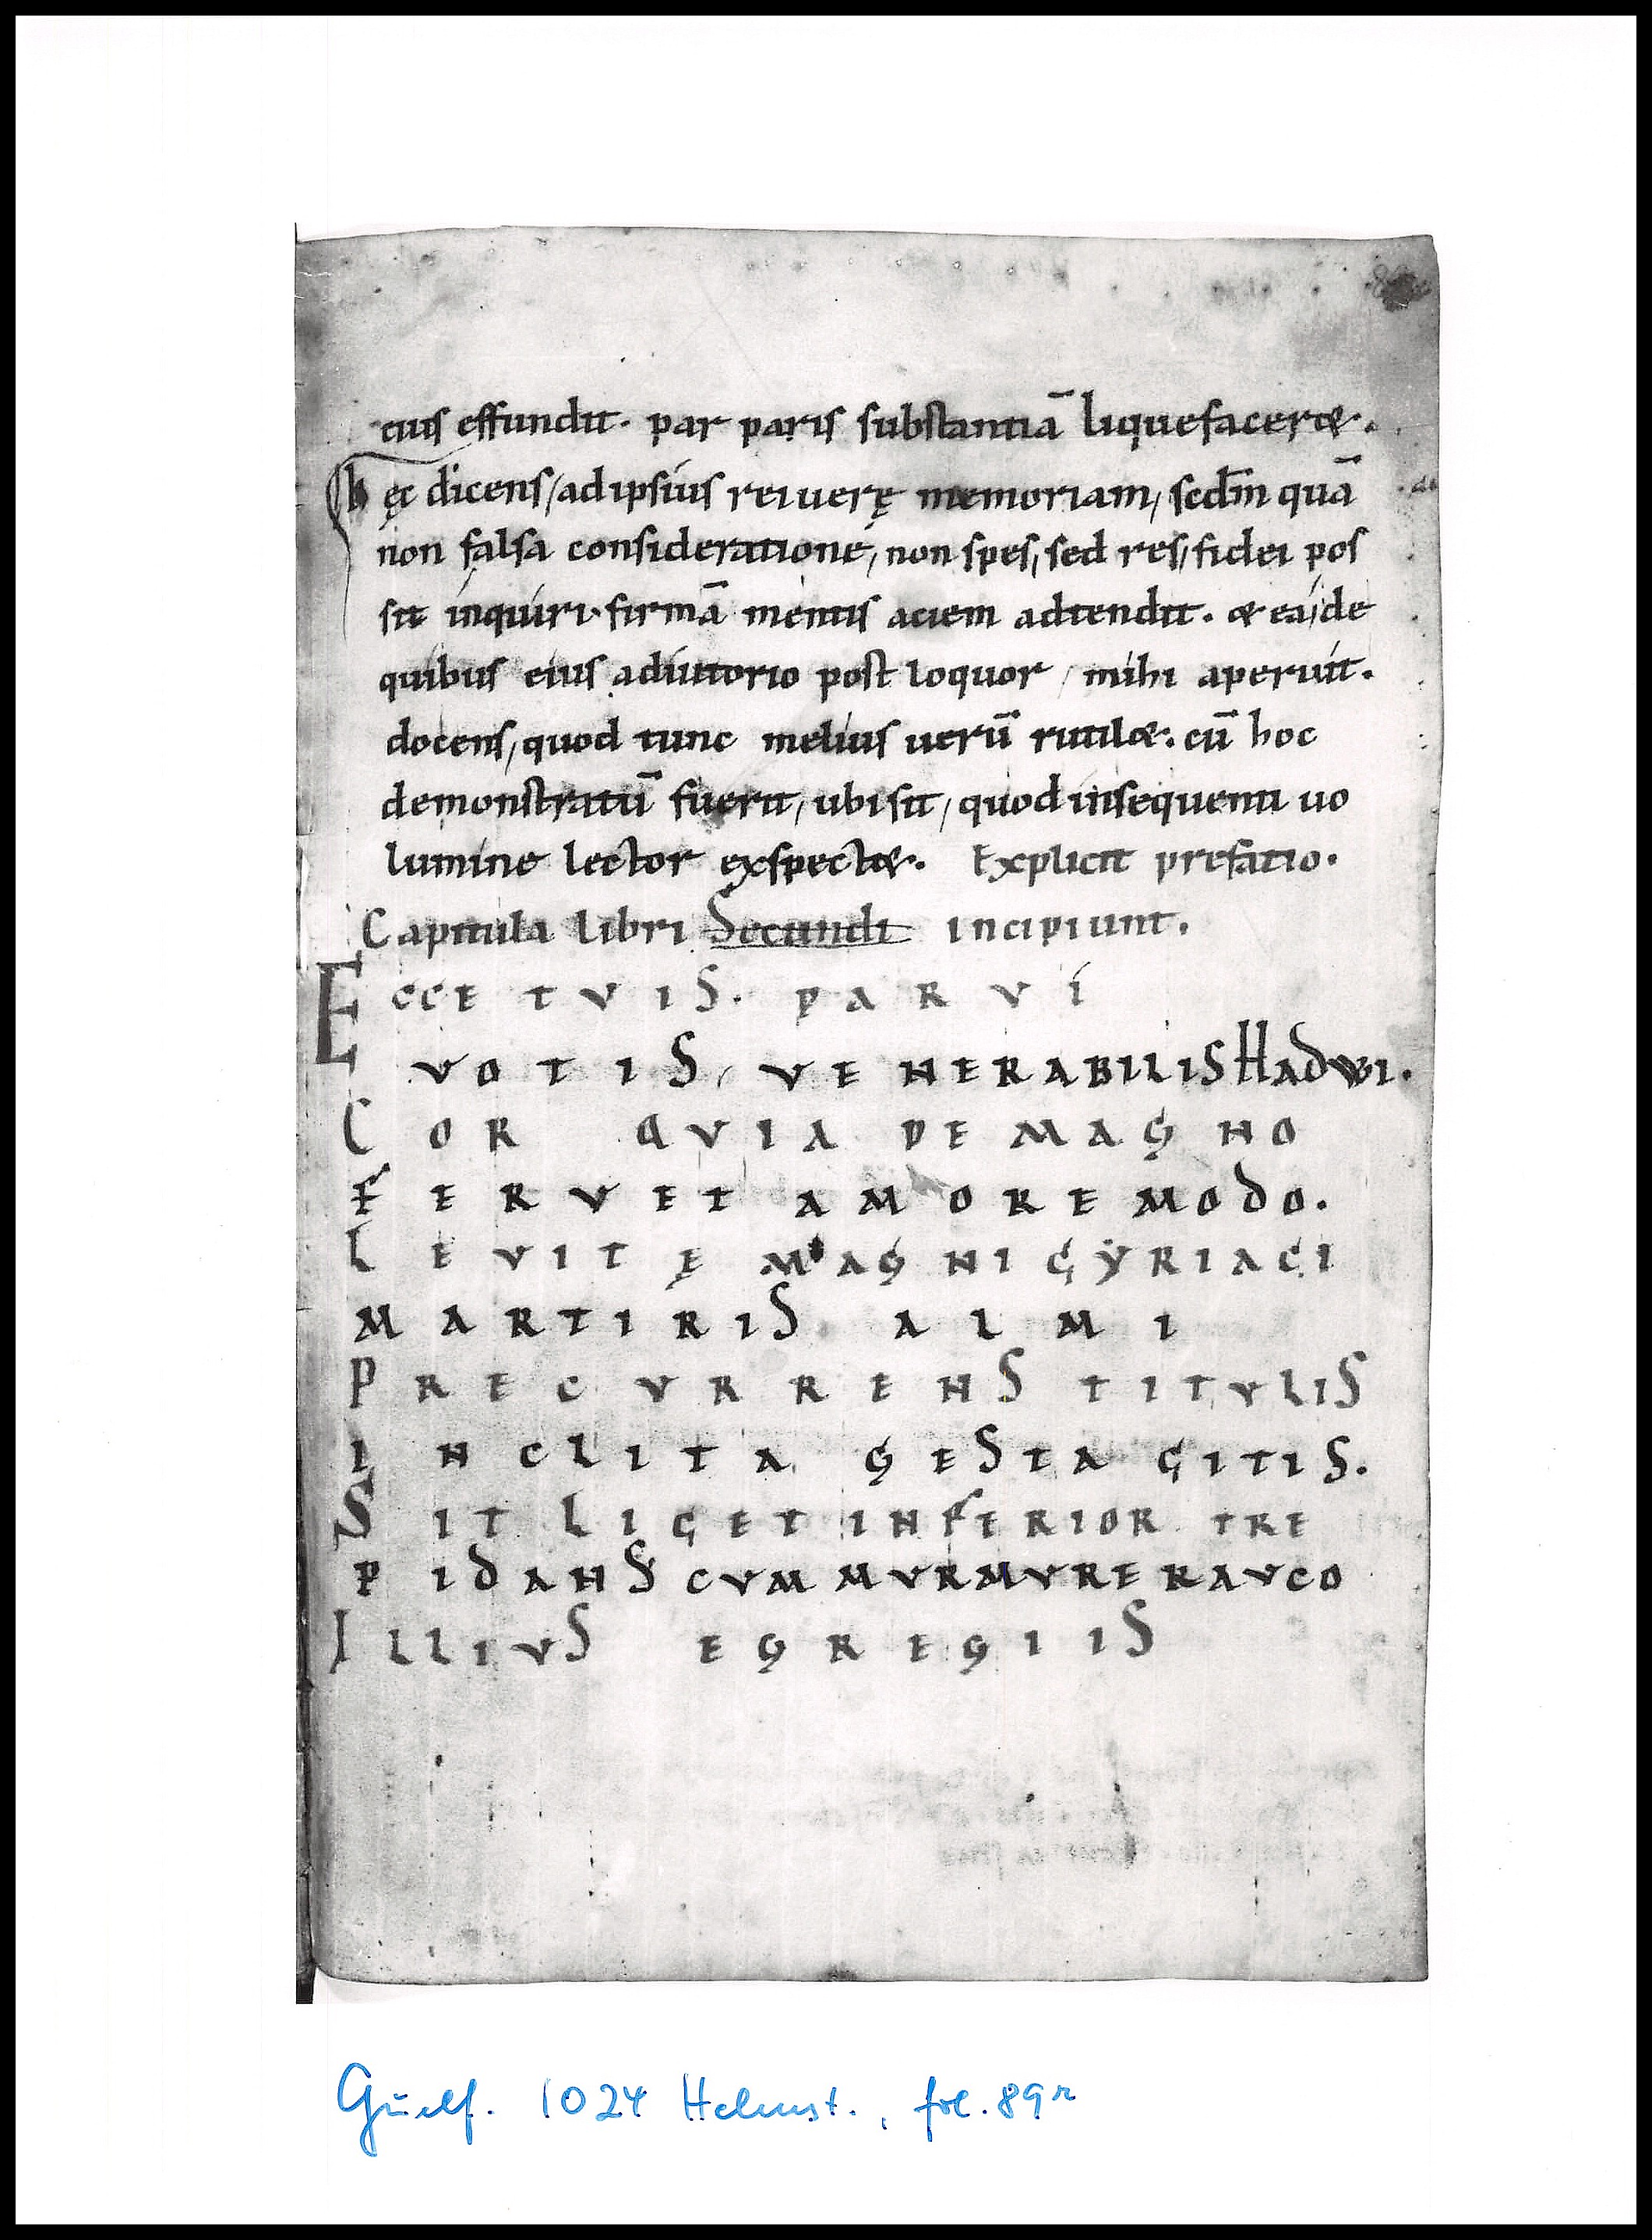 eius effundit. par paris substantiā liquefaceret.
hęc dicens, ad ipsius rei uerę memoriam, scdm̄ quā
non falsa consideratione, non spes, sed res, fidei pos
sit inquiri. firmā mentis aciem adtendit. et ea, de
quibus eius adiutorio post loquor, mihi aperuit.
docens, quod tunc melius uerū rutilet. cū hoc
demonstratū fuerit, ubi sit, quod insequenti uo
lumine lector exspectet. Explicit prefatio.
Capitula libri Secundi incipiunt.
ECCE TVIS. PARVI
VOTIS, VENERABILIS HadwI.
COR QVIA DE MAGNO
FERVET AMORE MODO.
LEVITĘ MAGNI CẎRIACI
MARTIRIS ALMI
PRECVRRENS TITVLIS
INCLITA GESTA CITIS.
SIT LICET INFERIOR TRE
PIDANS CVM MVRMVRE RAVCO
ILLIVS EGREGIIS
Guelf. 1024 Helmst., fol. 89r